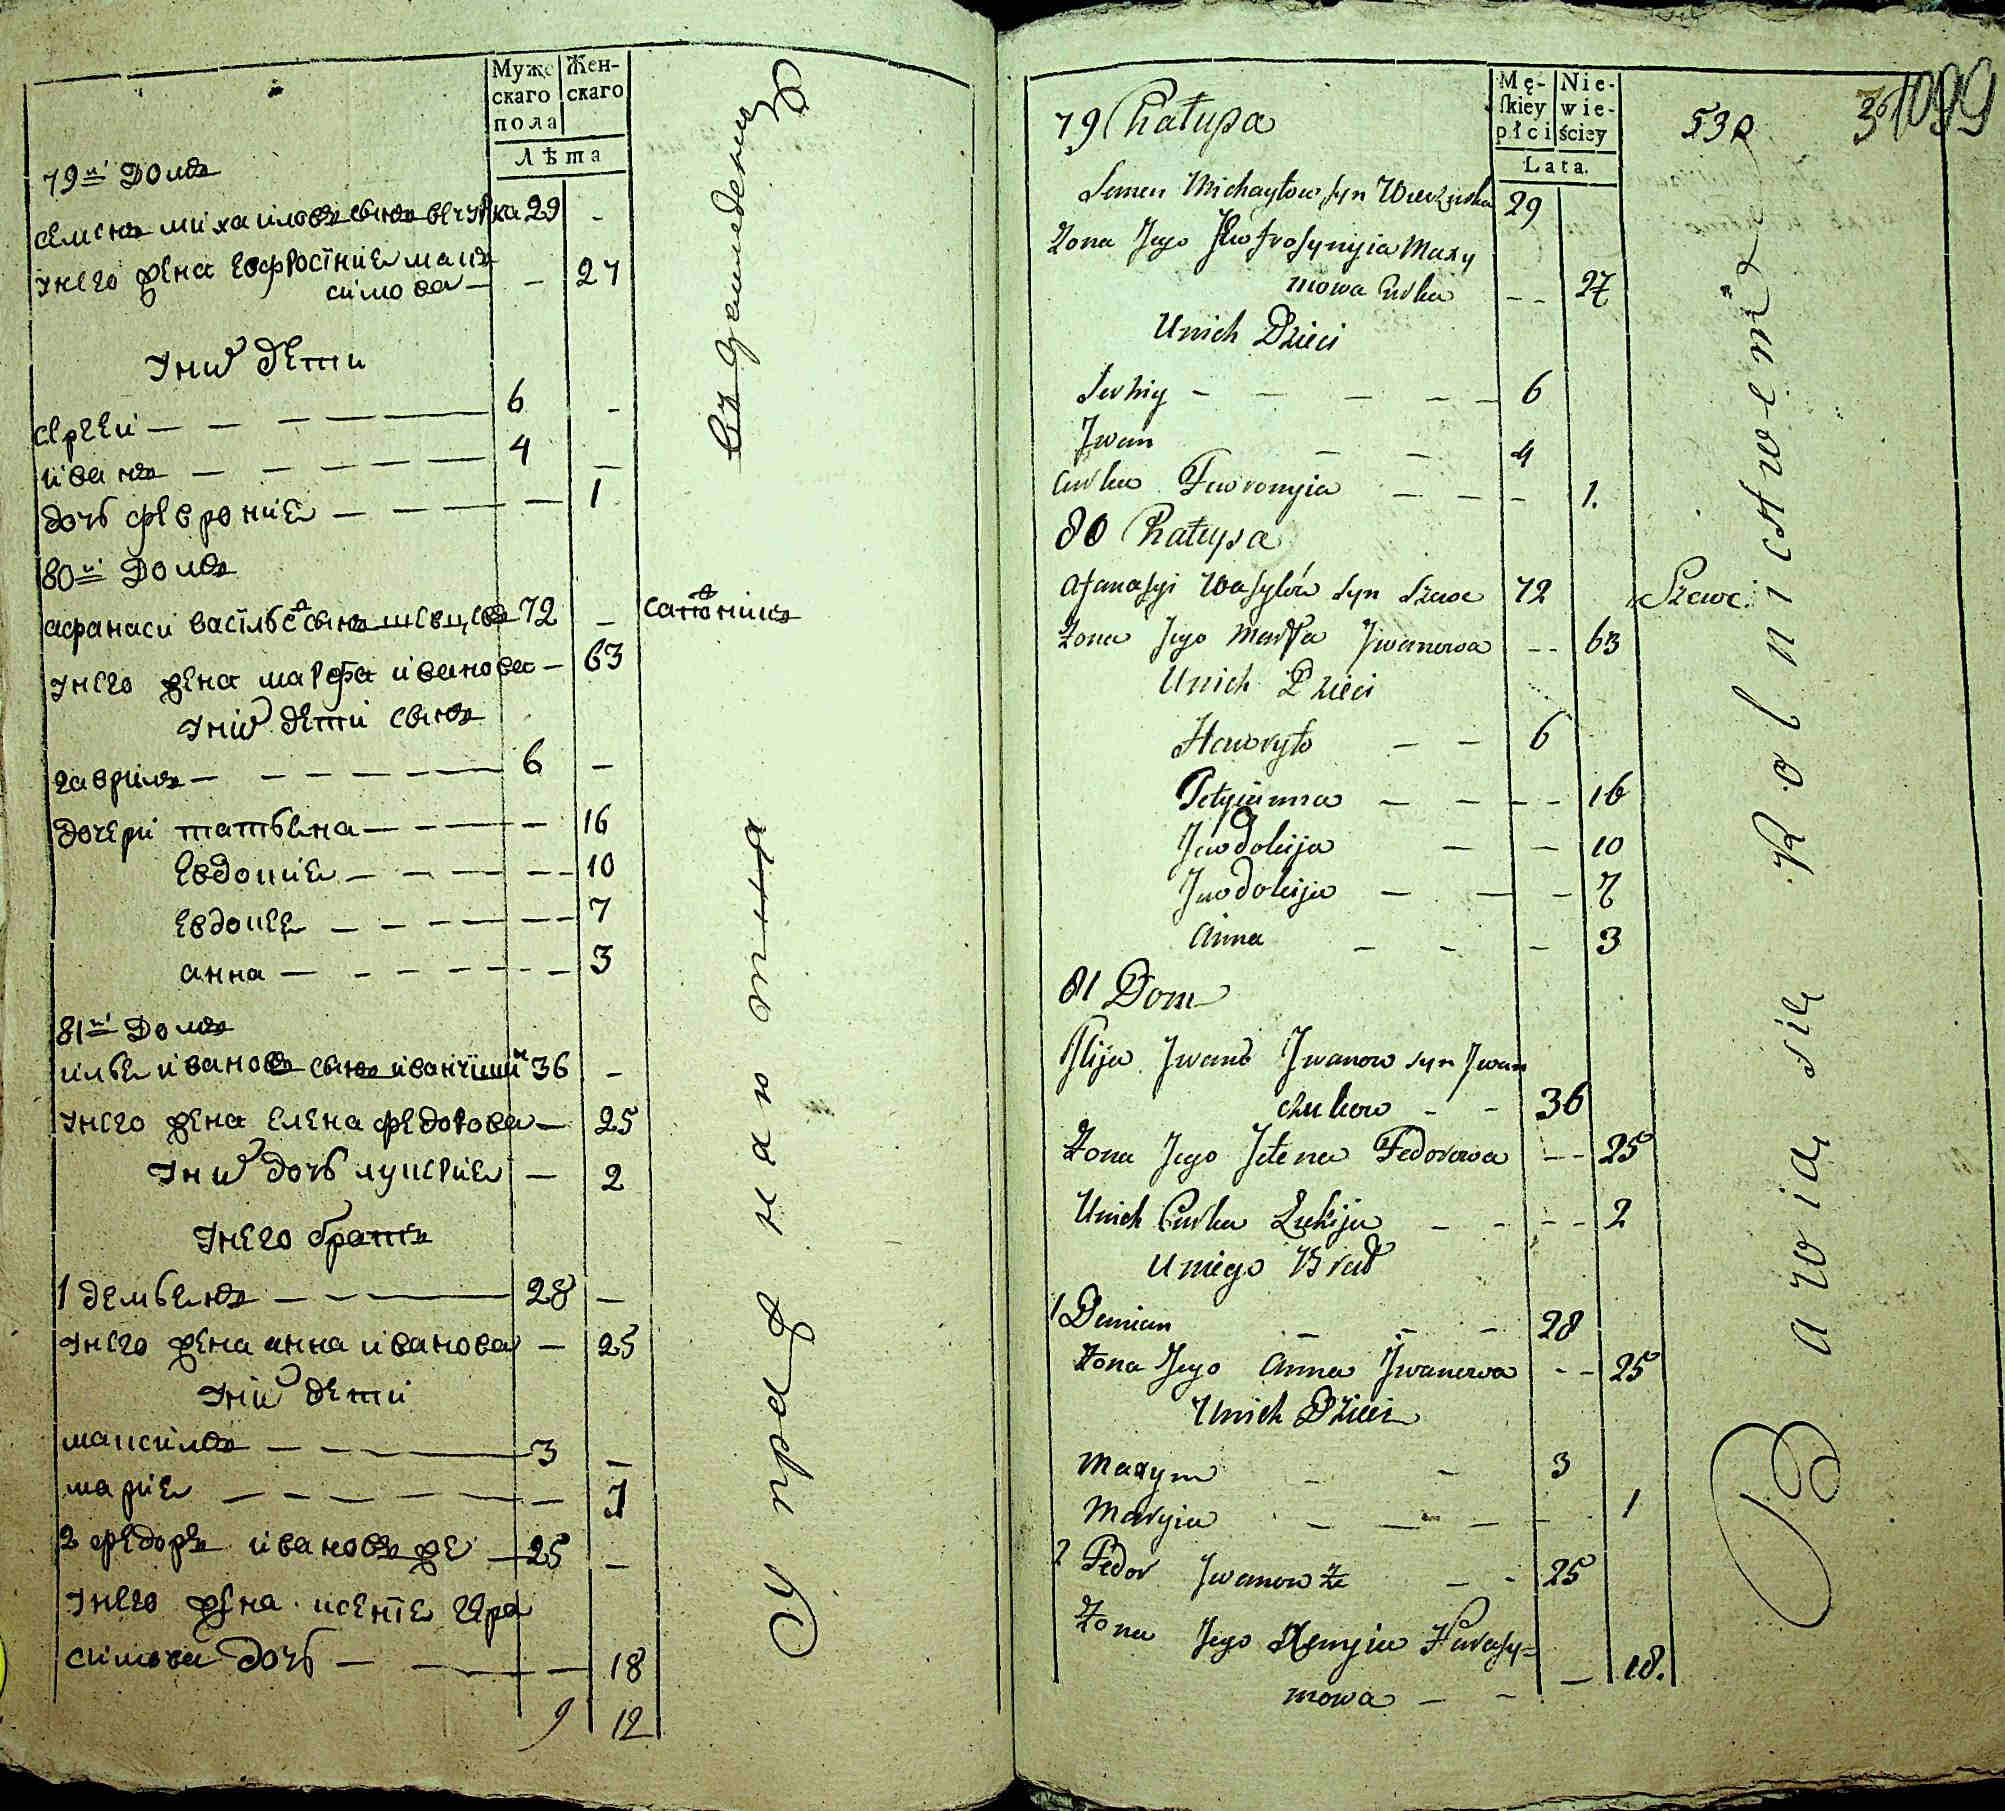 Муже
скаго
пола
Жен-
скаго
Лѣта
79й Домъ
семенъ михаиловъ сынъ 29 -
унего жена евфросїниѧ макъ
симова - - 27
Униⷯ дети
сергеи - 6 -
иванъ - 4 -
дочь феврониѧ - 1
80й Домъ
афанаси васїльеⷡ сынъ шевцовъ 72 -
унего жена марфа иванова - 63
Униⷯ дети сынъ
гаврилъ - 6 -
дочери татьѧна - 16
евдокиѧ - 10
евдокеѧ - 7
анна - 3
81й Домъ
ильѧ ивановъ сынъ 36 -
унего жена елена федорова - 25
Униⷯ дочь лукериѧ - 2
Унего братъѧ
1 демьѧнъ - 28 -
унего жена анна иванова - 25
Униⷯ дети
максимъ - 3 -
мариѧ - 1
2 федоръ ивановъ же - 25 -
унего жена ксенїѧ гера
симова дочь - 18
9 12
сапожникъ
Упражнаютца
въ земледении
Mę-
skiey
płci
Nie-
wie-
ściey
Lata.
53
1099
79 Chałupa
Semen Michayłow syn 29
Zona Jego Jewfrosynyia Maxy
mowa Curka - - 27
Unich Dzieci
Serhiy - 6
Jwan - 4
Curka Fewronyia - 1.
80 Chałupa
Afanasyi Wasylów syn Szewc 72
Szewc.
Zona Jego Marfa Jwanowa - - 63
Unich Dzieci
Hawryło - 6
Tetyianna - 16
Jewdokija - 10
Jewdokija - 7
Anna - 3
81 Dom
Jlija Jwanów Jwanow syn Jwan
czukow - - 36
Zona Jego Jełena Fedorowa - - 25
Unich Curka Łukija - 2
Uniego Brat
1 Demian - 28
Zona Jego Anna Jwanowa - - 25
Unich Dzieci
Maxym - 3
Maryia - 1
2 Fedor Jwanow że - 25
Zona Jego Xenyia Harasy=
mowa - - 18.
Bawią się Rolnictwem